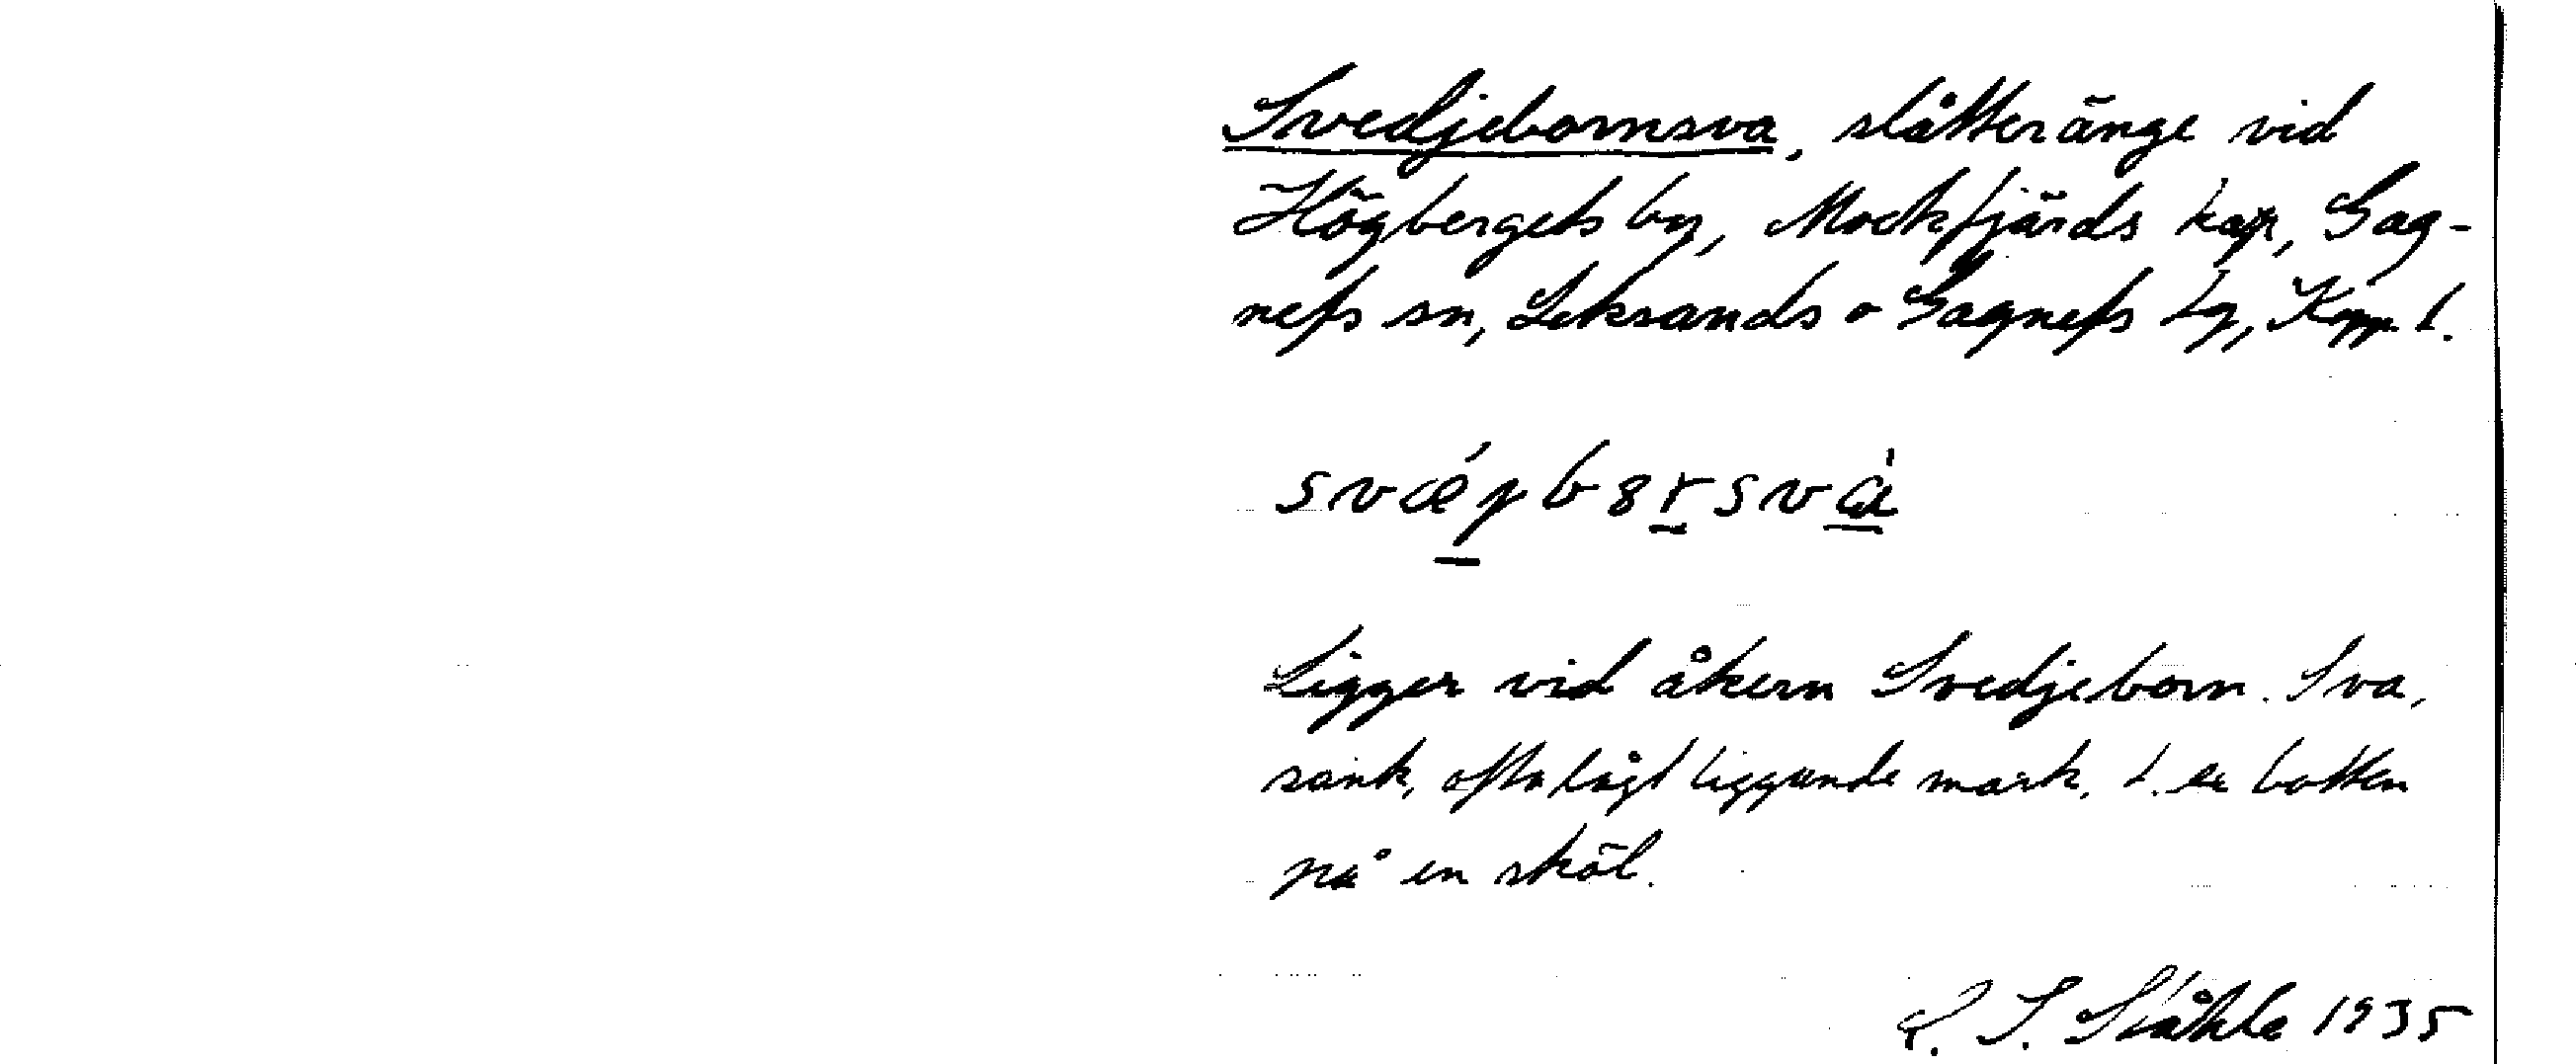 Svedjebornsva, slåtteränge vid
Högbergets by, Mockfjärds kap, Gag-
nefs sn, Leksands o Gagnefs tg, Kopp. l.
Ligger vid åkern Svedjeborn. Sva,
sank, ofta lågt liggande mark, t. ex botten
på en skål.
C. I. Ståhle 1935